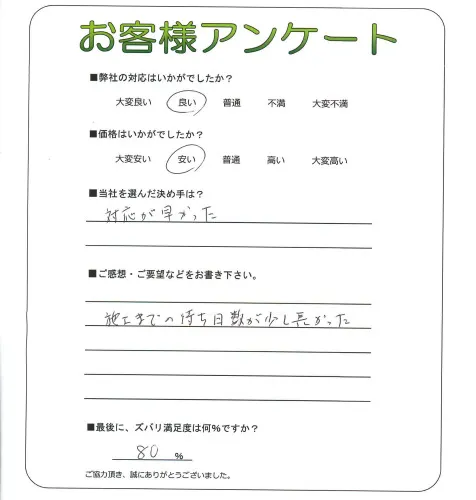 お客様アンケート
■弊社の対応はいかがでしたか？
大変良い 良い 普通 不満 大変不満
■価格はいかがでしたか？
大変安い 安い 普通 高い 大変高い
■当社を選んだ決め手は？
対応が早かった
■ご感想・ご要望などをお書き下さい。
施工までの待ち日数が少し長かった
■最後に、ズバリ満足度は何%ですか？
80 %
ご協力頂き、誠にありがとうございました。